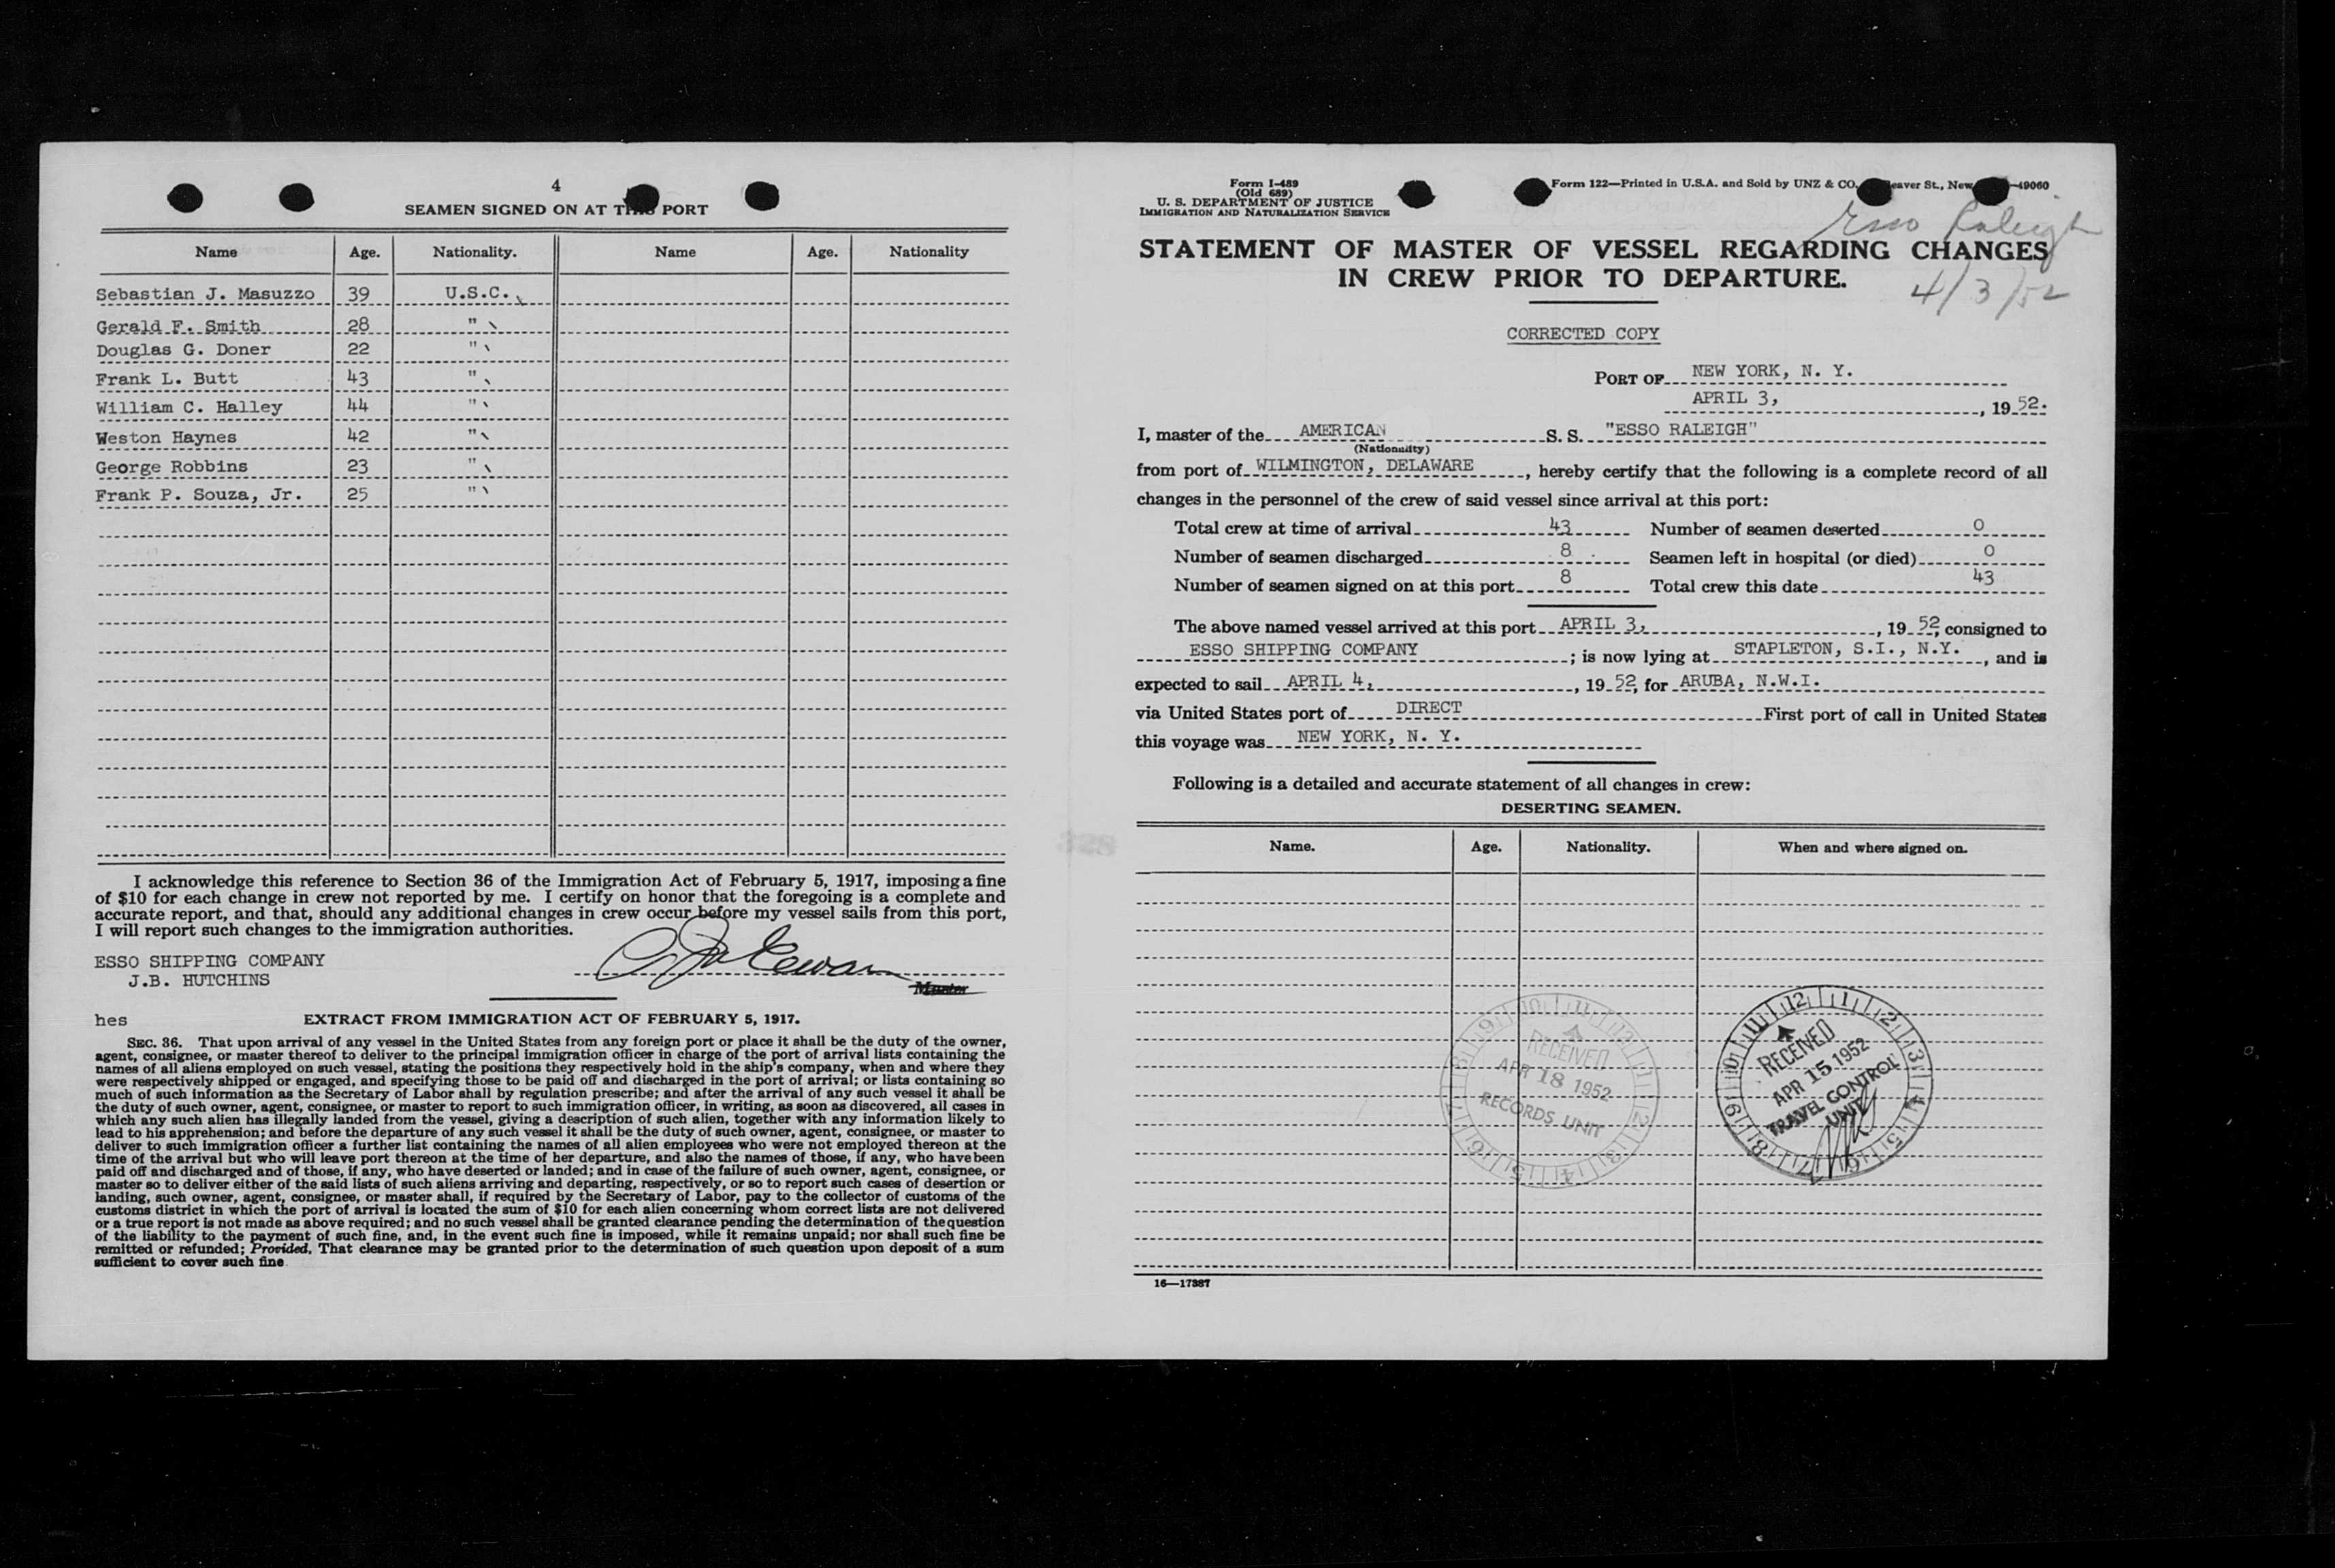 4
SEAMEN SIGNED ON AT THIS PORT
Name Age. Nationality. Name Age. Nationality
Sebastian J. Masuzzo 39 U.S.C.
Gerald F. Smith 28 "
Douglas G. Doner 22 "
Frank L. Butt 43 "
William C. Halley 44 "
Weston Haynes 42 "
George Robbins 23 "
Frank P. Souza, Jr. 25 "
I acknowledge this reference to Section 36 of the Immigration Act of February 5, 1917, imposing a fine
of $10 for each change in crew not reported by me. I certify on honor that the foregoing is a complete and
accurate report, and that, should any additional changes in crew occur before my vessel sails from this port,
I will report such changes to the immigration authorities.
ESSO SHIPPING COMPANY
J.B. HUTCHINS
Master
hes
EXTRACT FROM IMMIGRATION ACT OF FEBRUARY 5, 1917.
SEC. 36. That upon arrival of any vessel in the United States from any foreign port or place it shall be the duty of the owner,
agent, consignee, or master thereof to deliver to the principal immigration officer in charge of the port of arrival lists containing the
names of all aliens employed on such vessel, stating the positions they respectively hold in the ship's company, when and where they
were respectively shipped or engaged, and specifying those to be paid off and discharged in the port of arrival; or lists containing so
much of such information as the Secretary of Labor shall by regulation prescribe; and after the arrival of any such vessel it shall be
the duty of such owner, agent, consignee, or master to report to such immigration officer, in writing, as soon as discovered, all cases in
which any such alien has illegally landed from the vessel, giving a description of such alien, together with any information likely to
lead to his apprehension; and before the departure of any such vessel it shall be the duty of such owner, agent, consignee, or master to
deliver to such immigration officer a further list containing the names of all alien employees who were not employed thereon at the
time of the arrival but who will leave port thereon at the time of her departure, and also the names of those, if any, who have been
paid off and discharged and of those, if any, who have deserted or landed; and in case of the failure of such owner, agent, consignee, or
master so to deliver either of the said lists of such aliens arriving and departing, respectively, or so to report such cases of desertion or
landing, such owner, agent, consignee, or master shall, if required by the Secretary of Labor, pay to the collector of customs of the
customs district in which the port of arrival is located the sum of $10 for each alien concerning whom correct lists are not delivered
or a true report is not made as above required; and no such vessel shall be granted clearance pending the determination of the question
of the liability to the payment of such fine, and, in the event such fine is imposed, while it remains unpaid; nor shall such fine be
remitted or refunded; Provided, That clearance may be granted prior to the determination of such question upon deposit of a sum
sufficient to cover such fine
Form I-489
(Old 689)
U. S. DEPARTMENT OF JUSTICE
IMMIGRATION AND NATURALIZATION SERVICE
Form 122—Printed in U.S.A. and Sold by UNZ & CO. eaver St., New —49060
Esso Raleigh
STATEMENT OF MASTER OF VESSEL REGARDING CHANGES
IN CREW PRIOR TO DEPARTURE.
4/3/52
CORRECTED COPY
PORT OF NEW YORK, N. Y.
APRIL 3, , 19 52.
I, master of the AMERICAN S. S. "ESSO RALEIGH"
(Nationality)
from port of WILMINGTON, DELAWARE , hereby certify that the following is a complete record of all
changes in the personnel of the crew of said vessel since arrival at this port:
Total crew at time of arrival 43 Number of seamen deserted 0
Number of seamen discharged 8 Seamen left in hospital (or died) 0
Number of seamen signed on at this port 8 Total crew this date 43
The above named vessel arrived at this port APRIL 3, , 19 52, consigned to
ESSO SHIPPING COMPANY ; is now lying at STAPLETON, S.I., N.Y. , and is
expected to sail APRIL 4, , 19 52, for ARUBA, N.W.I.
via United States port of DIRECT First port of call in United States
this voyage was NEW YORK, N. Y.
Following is a detailed and accurate statement of all changes in crew:
DESERTING SEAMEN.
Name. Age. Nationality. When and where signed on.
RECEIVED
APR 18 1952
RECORDS UNIT
RECEIVED
APR 15 1952
TRAVEL CONTROL
UNIT
16—17387
328